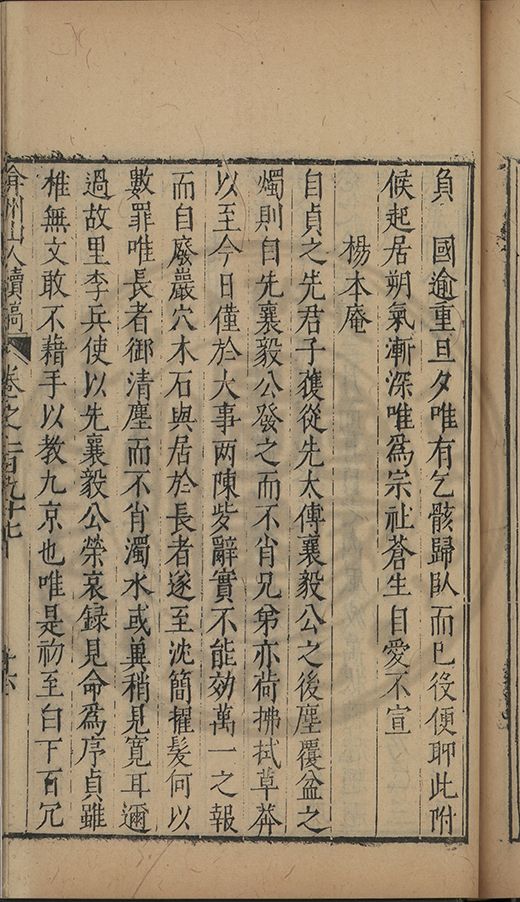 負　國逾重旦夕唯有乞骸歸臥而已役便聊此附
候起居朔氣漸深唯爲宗社蒼生自愛不宣
楊本庵
自貞之先君子獲從先太傅襄毅公之後塵覆盆之
燭則自先襄毅公發之而不肖兄弟亦荷拂拭草莽
以至今日僅於大事两陳岁辭實不能効萬一之報
而自廢巖穴木石與居於長者遂至沈簡擢髮何以
數罪唯長者御清塵而不肖濁水或冀稍見寛耳邇
過故里李兵使以先襄毅公榮哀録見命爲序貞雖
椎無文敢不藉手以教九京也唯是初至白下百冗
弇州山人續稿　卷之一百九十七　十六